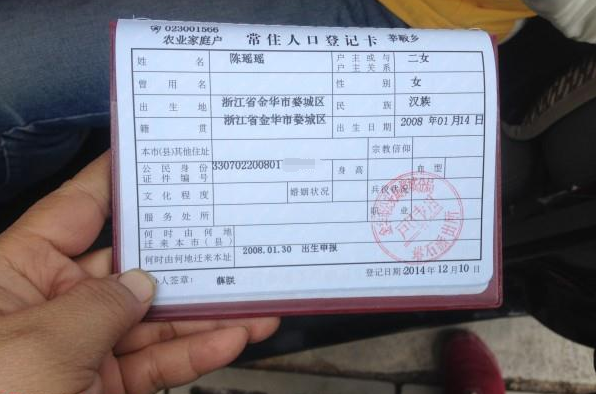 023001566
农业家庭户 常住人口登记卡 莘畈乡
姓名 陈瑶瑶 户主或与户主关系 二女
曾用名 性别 女
出生地 浙江省金华市婺城区 民族 汉族
籍贯 浙江省金华市婺城区 出生日期 2008年01月14日
本市(县)其他住址 宗教信仰
公民身份证件编号 330702200801 身高 血型
文化程度 婚姻状况 兵役状况
服务处所 职业
何时由何地迁来本市(县)
何时由何地迁来本址 2008.01.30 出生申报
办人签章: 登记日期:2014年12月10日